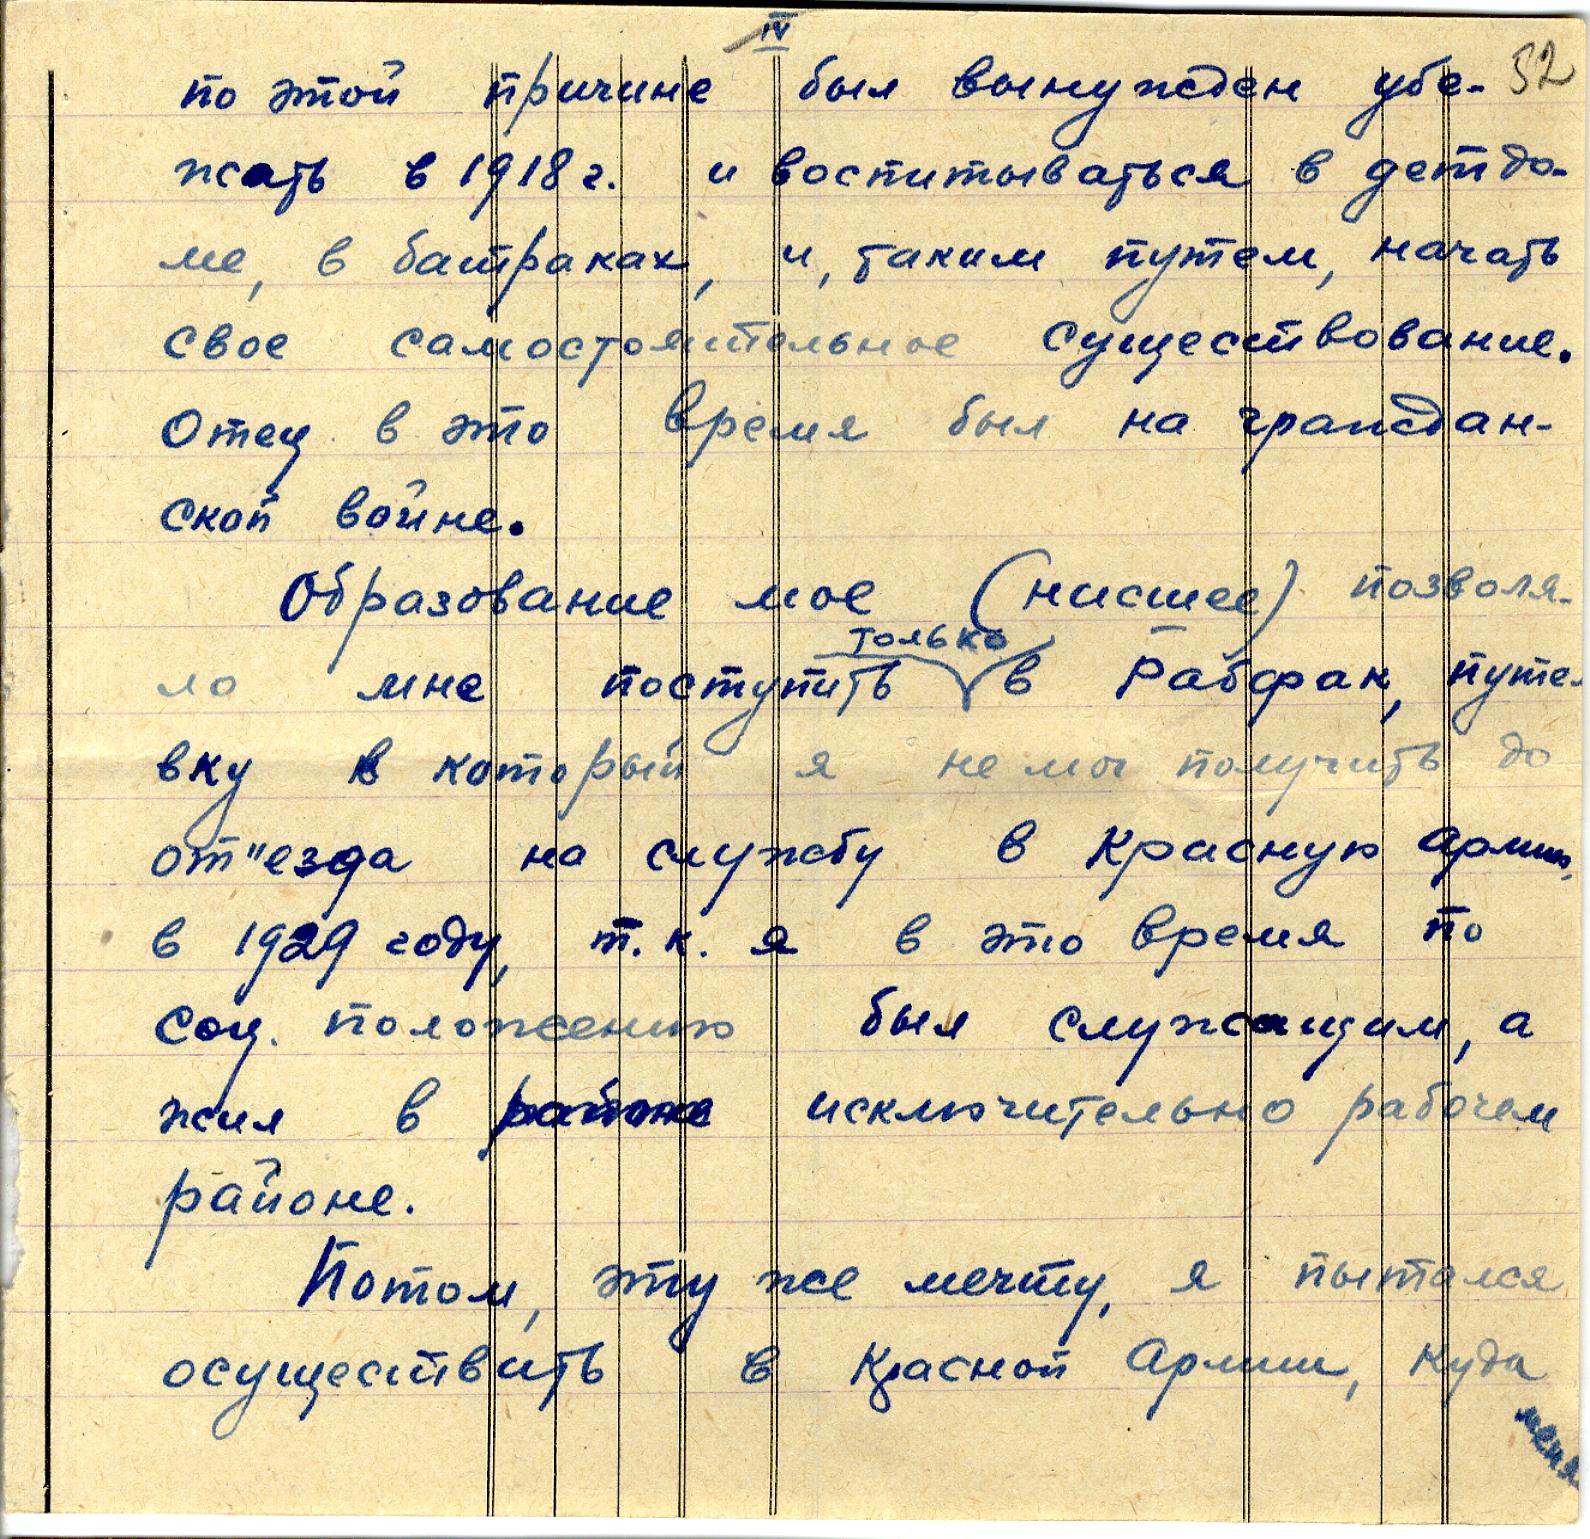 IV
32
по этой причине был вынужден убе-
жать в 1918 г. и воспитываться в детдо-
ме, в батраках, и, таким путем, начать
свое самостоятельное существование.
Отец в это время был на граждан-
ской войне.
Образование мое (нисшее) позволя-
только
ло мне поступить в Рабфак, путе-
вку в который я не мог получить до
от"езда на службу в Красную Армию,
в 1929 году, т.к. я в это время по
соц. положению был служащим, а
жил в районе исключительно рабочем
районе.
Потом, эту же мечту, я пытался
осуществить в Красной Армии, куда
меня